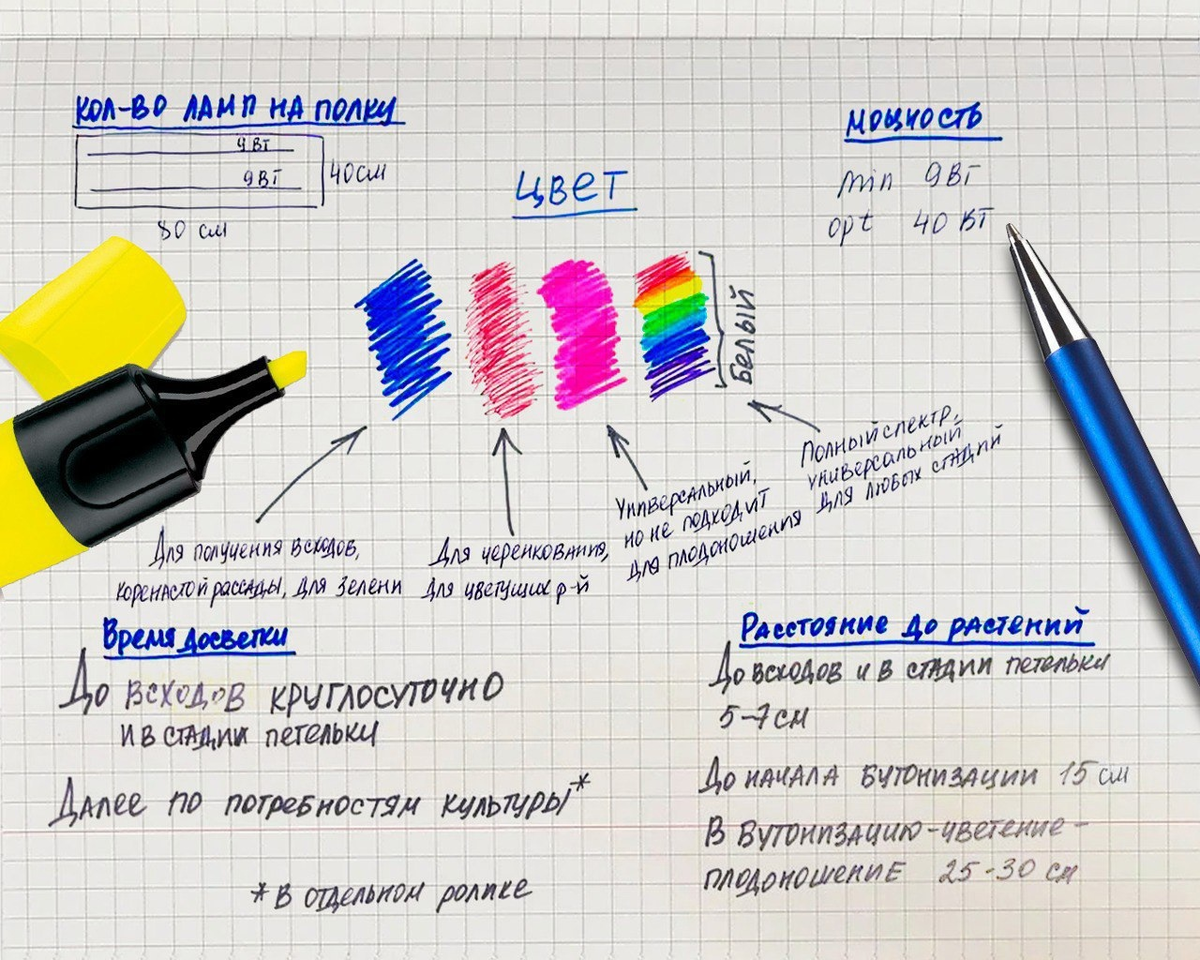 КОЛ-ВО ЛАМП НА ПОЛКУ
9 ВТ
9 ВТ
40 см
80 см
ЦВЕТ
МОЩНОСТЬ
min 9 ВТ
opt 40 ВТ
БЕЛЫЙ
Для получения всходов,
коренастой рассады, для зелени
Для черенкования,
для цветущих р-й
Универсальный,
но не подходит
для плодоношения
Полный спектр,
универсальный
для любых стадий
Время досветки
До всходов круглосуточно
и в стадии петельки
Далее по потребностям культуры*
* В отдельном ролике
Расстояние до растений
До всходов и в стадии петельки
5-7 см
До начала бутонизации 15 см
В бутонизацию-цветение-
плодоношение 25-30 см